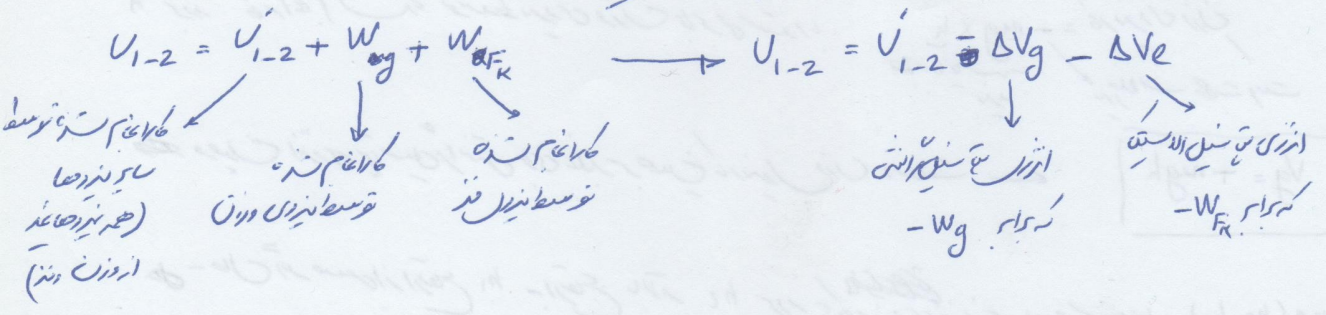 U₁₋₂ = Ú₁₋₂ + Wg + W_Fk → U₁₋₂ = Ú₁₋₂ - ΔVg - ΔVe
کار انجام شده توسط
سایر نیروها
(همه نیروها بغیر
از وزن و فنر)
کار انجام شده
توسط نیروی وزن
کار انجام شده
توسط نیروی فنر
انرژی پتانسیل گرانشی
که برابر -Wg
انرژی پتانسیل الاستیک
که برابر -W_Fk